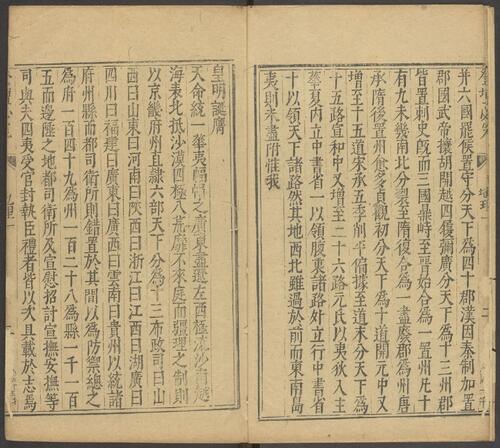 并六國罷侯置守分天下為四十郡漢因秦制加置
郡國武帝攘胡開越四履彌廣分天下為十三州郡
皆置刺史既而三國鼎峙至晉始合為一置州凡十
有九未幾南北分裂至隋復合為一盡廢郡為州唐
承隋後置州愈多貞觀初分天下為十道開元中又
增至十五道宋承五季削平偏據至道末分天下為
十五路宣和中又增至二十六路元氏以夷狄入主
華夏內立中書省一以領腹裏諸路外立行中書省
十以領天下諸路然其地西北雖過於前而東南島
夷則未盡附惟我
皇明誕膺
天命統一華夷幅員之廣東盡遼左西極流沙南越
海表北抵沙漠四極八荒靡不來庭而疆理之制則
以京畿府州直隸六部天下分為十三布政司曰山
西曰山東曰河南曰陝西曰浙江曰江西曰湖廣曰
四川曰福建曰廣東曰廣西曰雲南曰貴州以統諸
府州縣而都司衛所則錯置於其間以為防禦總之
為府一百四十九為州一百二十八為縣一千一百
五而邊陲之地都司衛所及宣慰招討宣撫安撫等
司與夫四夷受官封執臣禮者皆以次具載於志焉